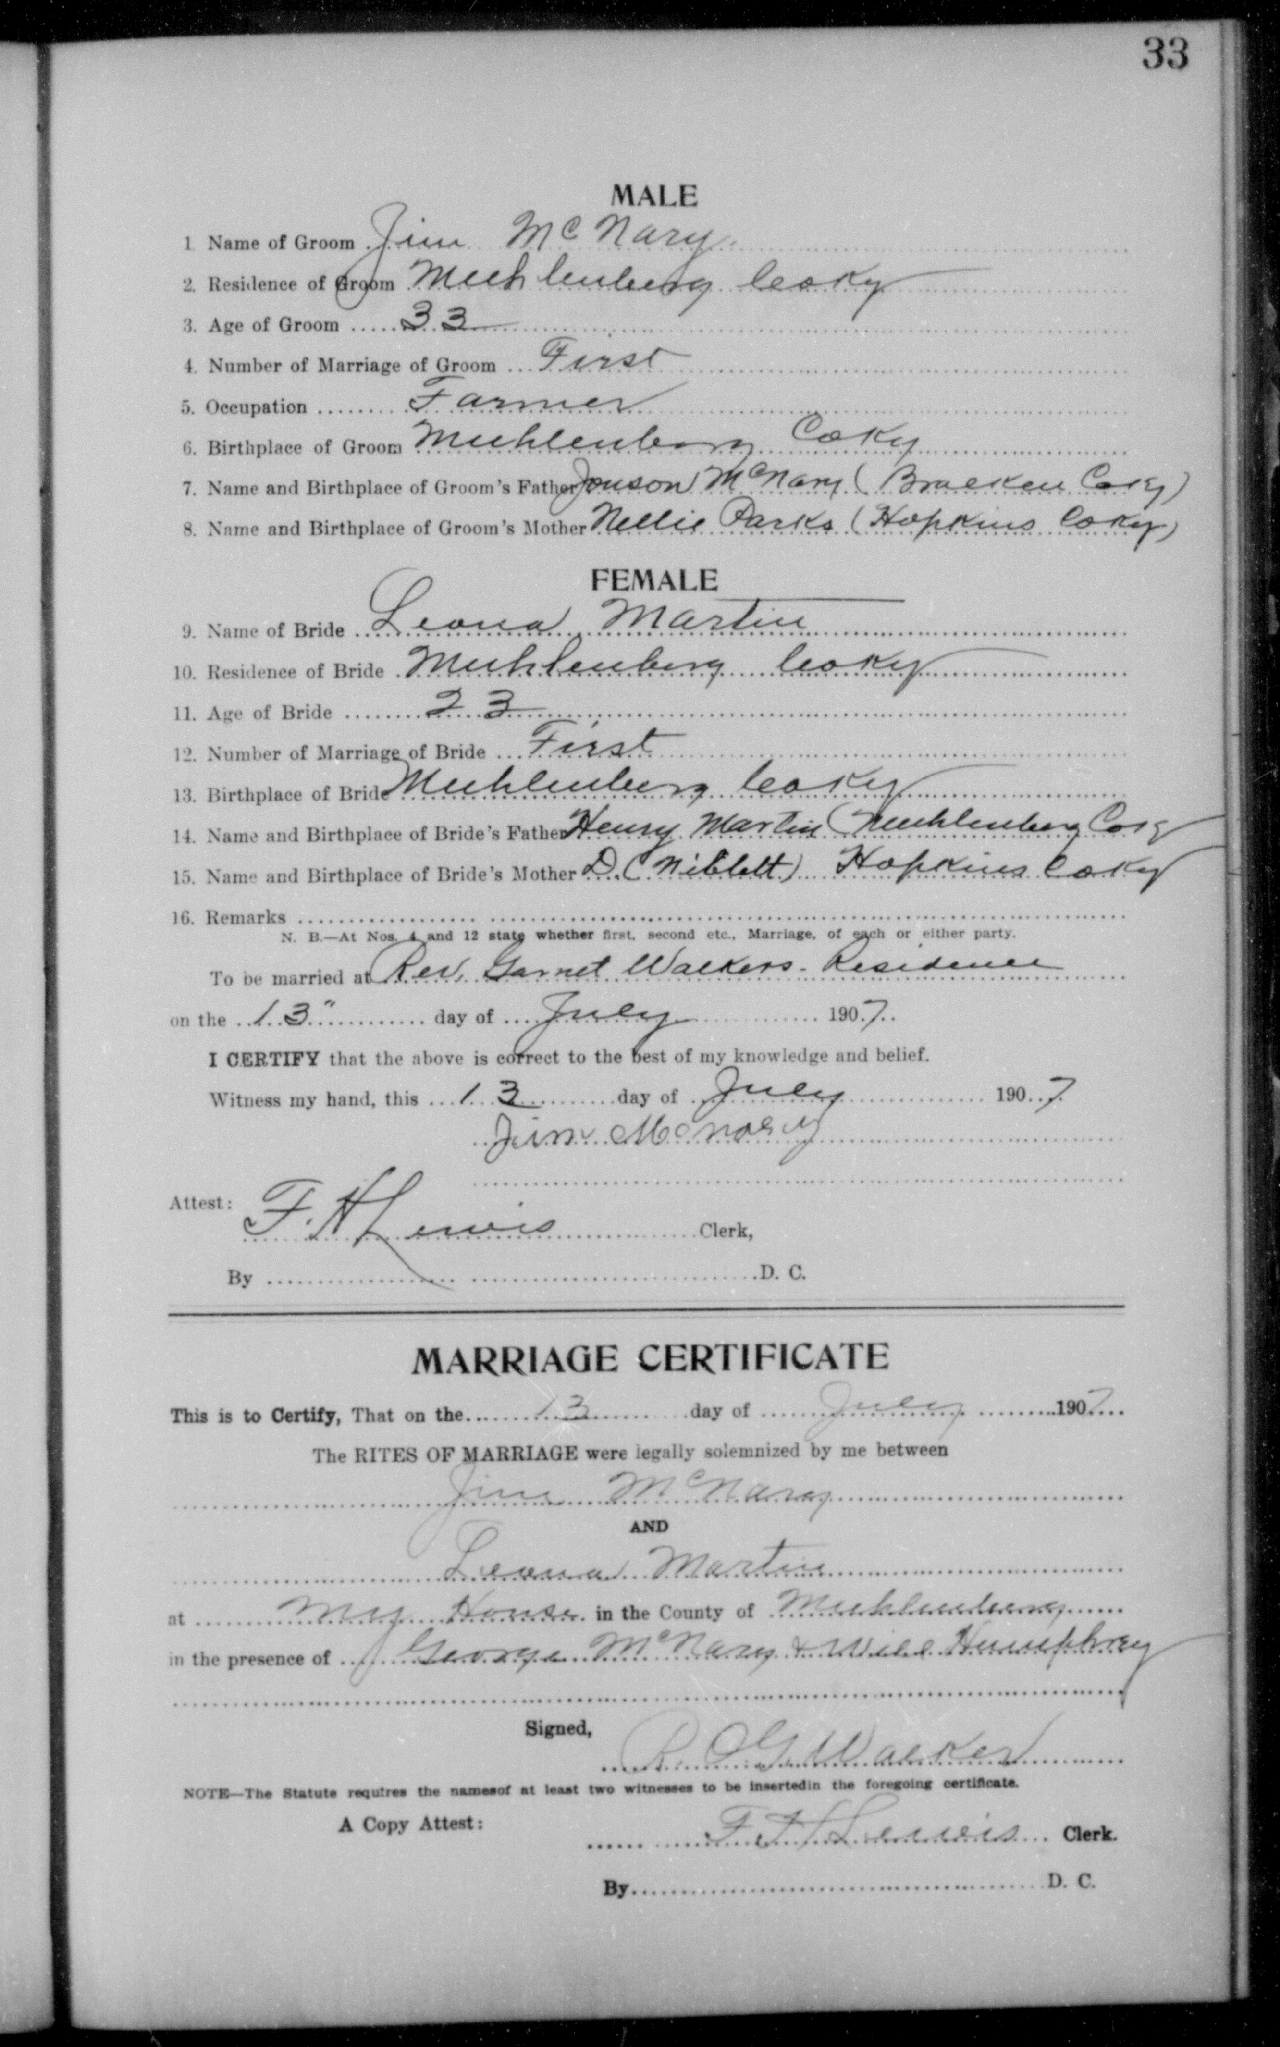 33
MALE
1 Name of Groom Jim McNary
2. Residence of Groom Muhlenberg Co Ky
3. Age of Groom 33
4. Number of Marriage of Groom First
5. Occupation Farmer
6. Birthplace of Groom Muhlenberg Co Ky
7. Name and Birthplace of Groom's Father Jonson McNary (Bracken Co Ky)
8. Name and Birthplace of Groom's Mother Nellie Parks (Hopkins Co Ky)
FEMALE
9. Name of Bride Leona Martin
10. Residence of Bride Muhlenberg Co Ky
11. Age of Bride 23
12. Number of Marriage of Bride First
13. Birthplace of Bride Muhlenberg Co Ky
14. Name and Birthplace of Bride's Father Henry Martin (Muhlenberg Co Ky
15. Name and Birthplace of Bride's Mother D. (Niblett) Hopkins Co Ky
16. Remarks
N. B.—At Nos. 4 and 12 state whether first, second etc., Marriage, of each or either party.
To be married at Rev. Garnet Walkers. Residence
on the 13" day of July 1907
I CERTIFY that the above is correct to the best of my knowledge and belief.
Witness my hand, this 13 day of July 1907
Jim
Attest: F. H Lewis Clerk,
By D. C.
MARRIAGE CERTIFICATE
This is to Certify, That on the 13 day of July 1907
The RITES OF MARRIAGE were legally solemnized by me between
Jim McNary
AND
Leona Martin
at My House in the County of Muhlenberg
in the presence of George McNary & Will Humphrey
Signed,
R. G. Walker
NOTE—The Statute requires the namesof at least two witnesses to be insertedin the foregoing certificate.
A Copy Attest: F H Lewis Clerk.
By D. C.